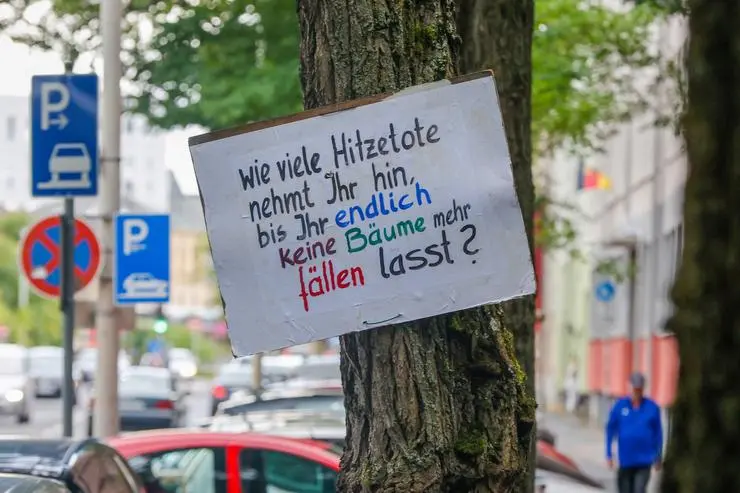 P
P
wie viele Hitzetote
nehmt Ihr hin,
bis Ihr endlich
keine Bäume mehr
fällen lasst?